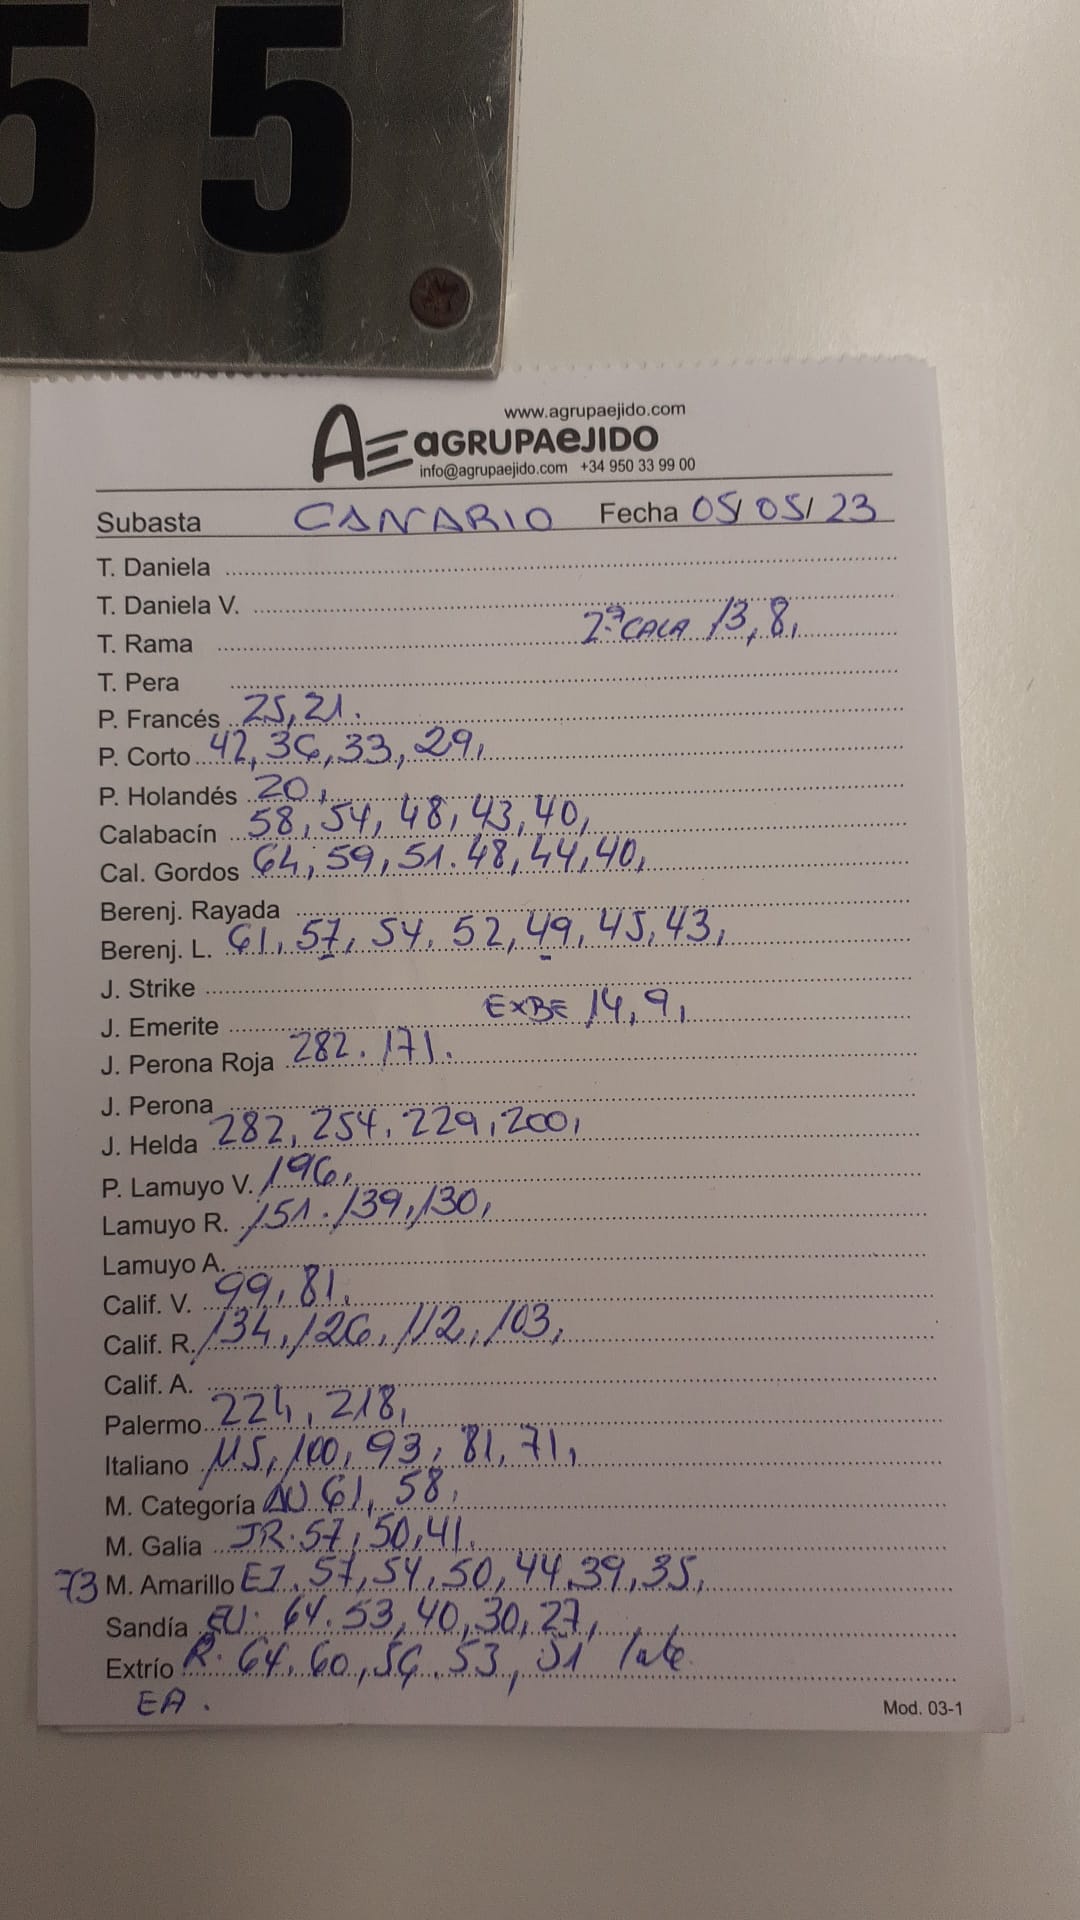 55
www.agrupaejido.com
AE aGRUPAeJIDO
info@agrupaejido.com +34 950 33 99 00
Subasta CANARIO Fecha 05/05/23
T. Daniela
T. Daniela V.
T. Rama 2ª CALA 13, 8,
T. Pera
P. Francés 25, 21.
P. Corto 42, 36, 33, 29,
P. Holandés 20,
Calabacín 58, 54, 48, 43, 40,
Cal. Gordos 64, 59, 51. 48, 44, 40,
Berenj. Rayada
Berenj. L. 61, 57, 54. 52, 49, 45, 43,
J. Strike
J. Emerite EXBE 14, 9,
J. Perona Roja 282. 171.
J. Perona
J. Helda 282, 254, 229, 200,
P. Lamuyo V. 196,
Lamuyo R. 151. 139, 130,
Lamuyo A.
Calif. V. 99, 81,
Calif. R. 134, 126, 112, 103,
Calif. A.
Palermo 224, 218,
Italiano 115, 100, 93, 81, 71,
M. Categoría 61, 58,
M. Galia JR. 57, 50, 41.
73 M. Amarillo EJ. 57, 54, 50, 44, 39, 35,
Sandía 64. 53, 40, 30, 27,
Extrío R. 64, 60, 56. 53, 51
EA.
Mod. 03-1